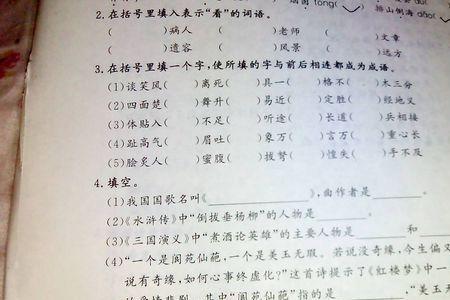 囱 tóng(
排山倒海 dǎo(
2.在括号里填入表示“看”的词语。
( )病人 ( )老师 ( )文章
( )遗容 ( )风景 ( )远方
3.在括号里填一个字,使所填的字与前后相连都成为成语。
(1)谈笑风( )离死( )具一( )格不( )木三分
(2)四面楚( )舞升( )易近( )定胜( )经地义
(3)体贴入( )不足( )听途( )长道( )兵相接
(4)趾高气( )眉吐( )象万( )言万( )重心长
(5)脍炙人( )蜜腹( )拔弩( )惶失( )手不及
4.填空。
(1)我国国歌名叫《 》,曲作者是 。
(2)《水浒传》中“倒拔垂杨柳”的人物是 。
(3)《三国演义》中“煮酒论英雄”的主要人物是 和
(4)“一个是阆苑仙葩,一个是美玉无瑕。若说没奇缘,今生偏又
说有奇缘,如何心事终虚化?”这首诗提示了《红楼梦》中一
的爱情悲剧,其中“阆苑仙葩”指的是 ,“美玉无